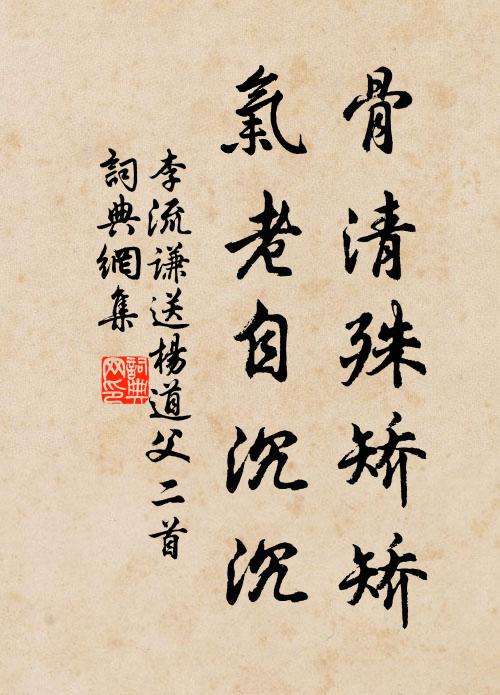 骨清殊矯矯
氣老自沉沉
李流謙送楊道父二首
詞典網集
詞典
网印